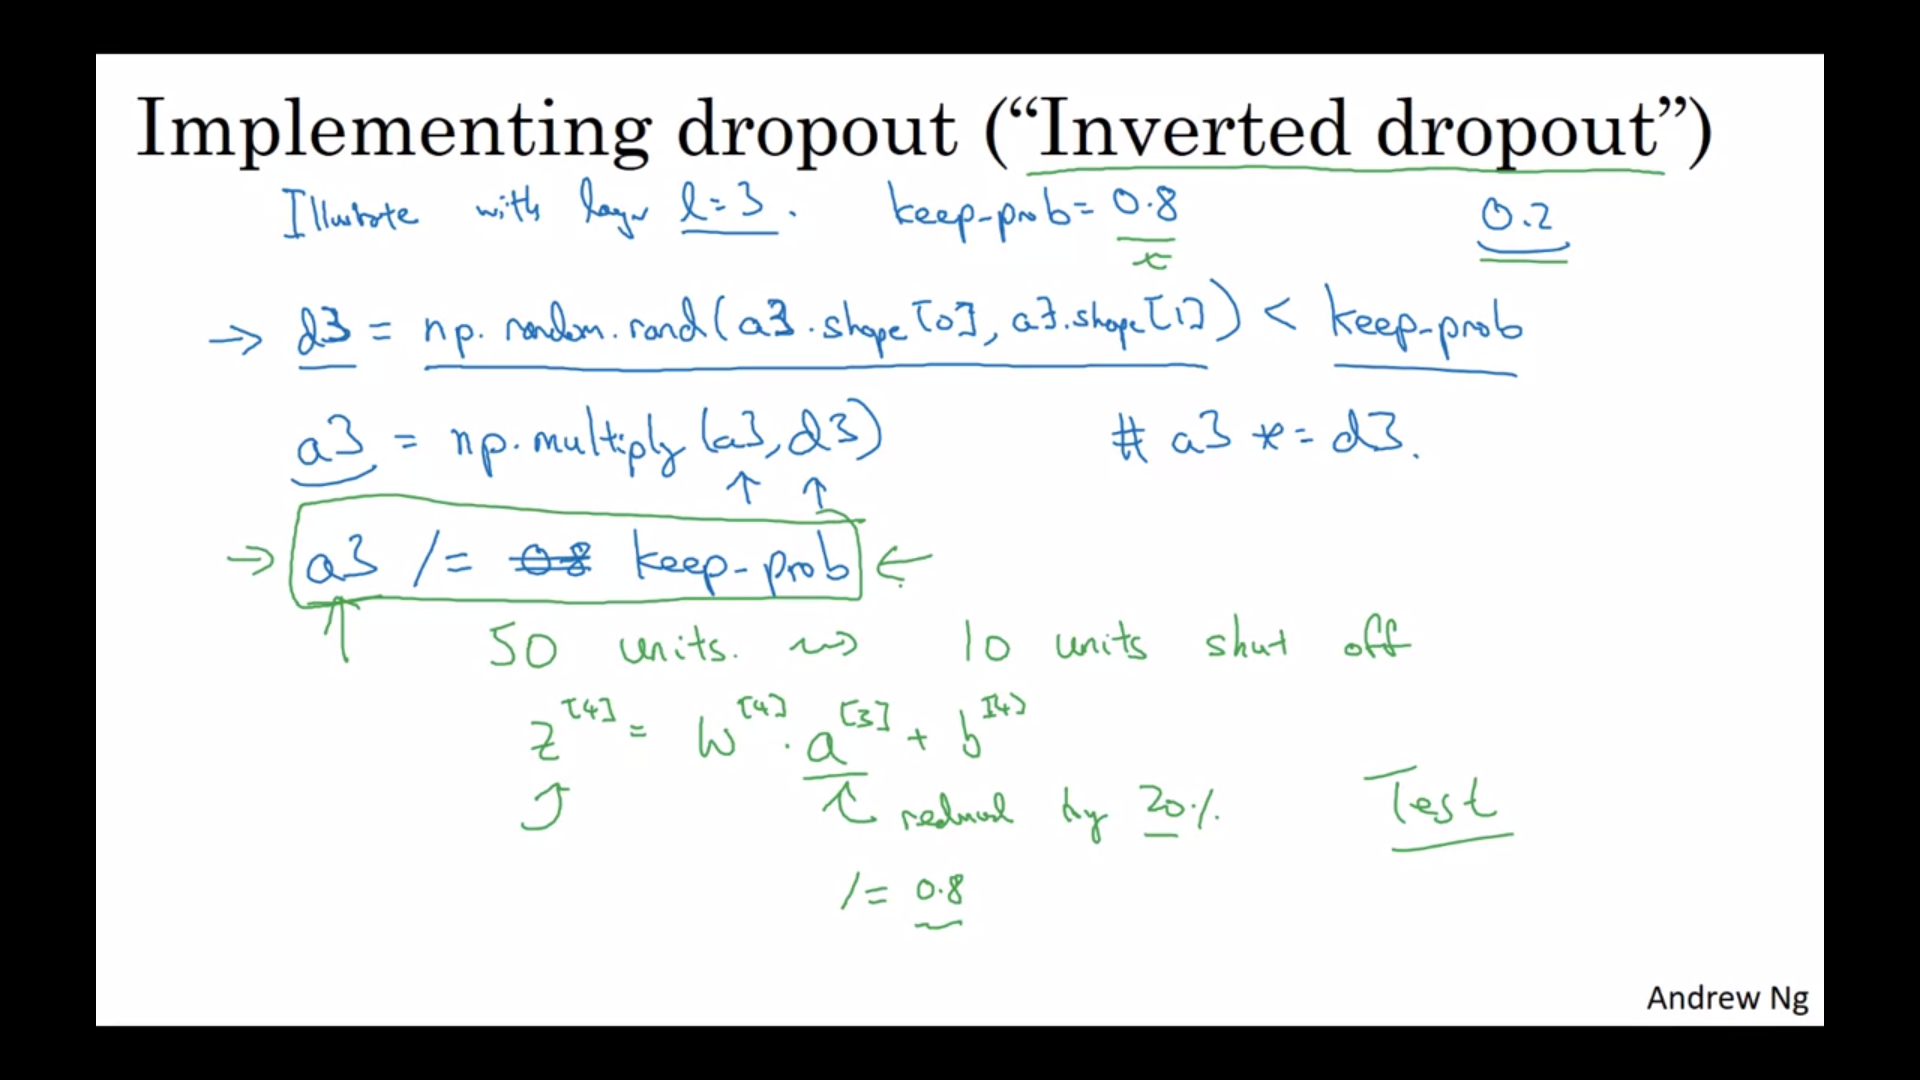 Implementing dropout (“Inverted dropout”)
Illustrate with layer l=3. keep-prob= 0.8 0.2
x
→ d3 = np.random.rand(a3.shape[0], a3.shape[1]) < keep-prob
a3 = np.multiply(a3,d3) # a3 *= d3.
↑ ↑
→ a3 /= 0.8 keep-prob ←
50 units. ⇝ 10 units shut off
z^[4] = W^[4] . a^[3] + b^[4]
reduced by 20%. Test
/= 0.8
Andrew Ng